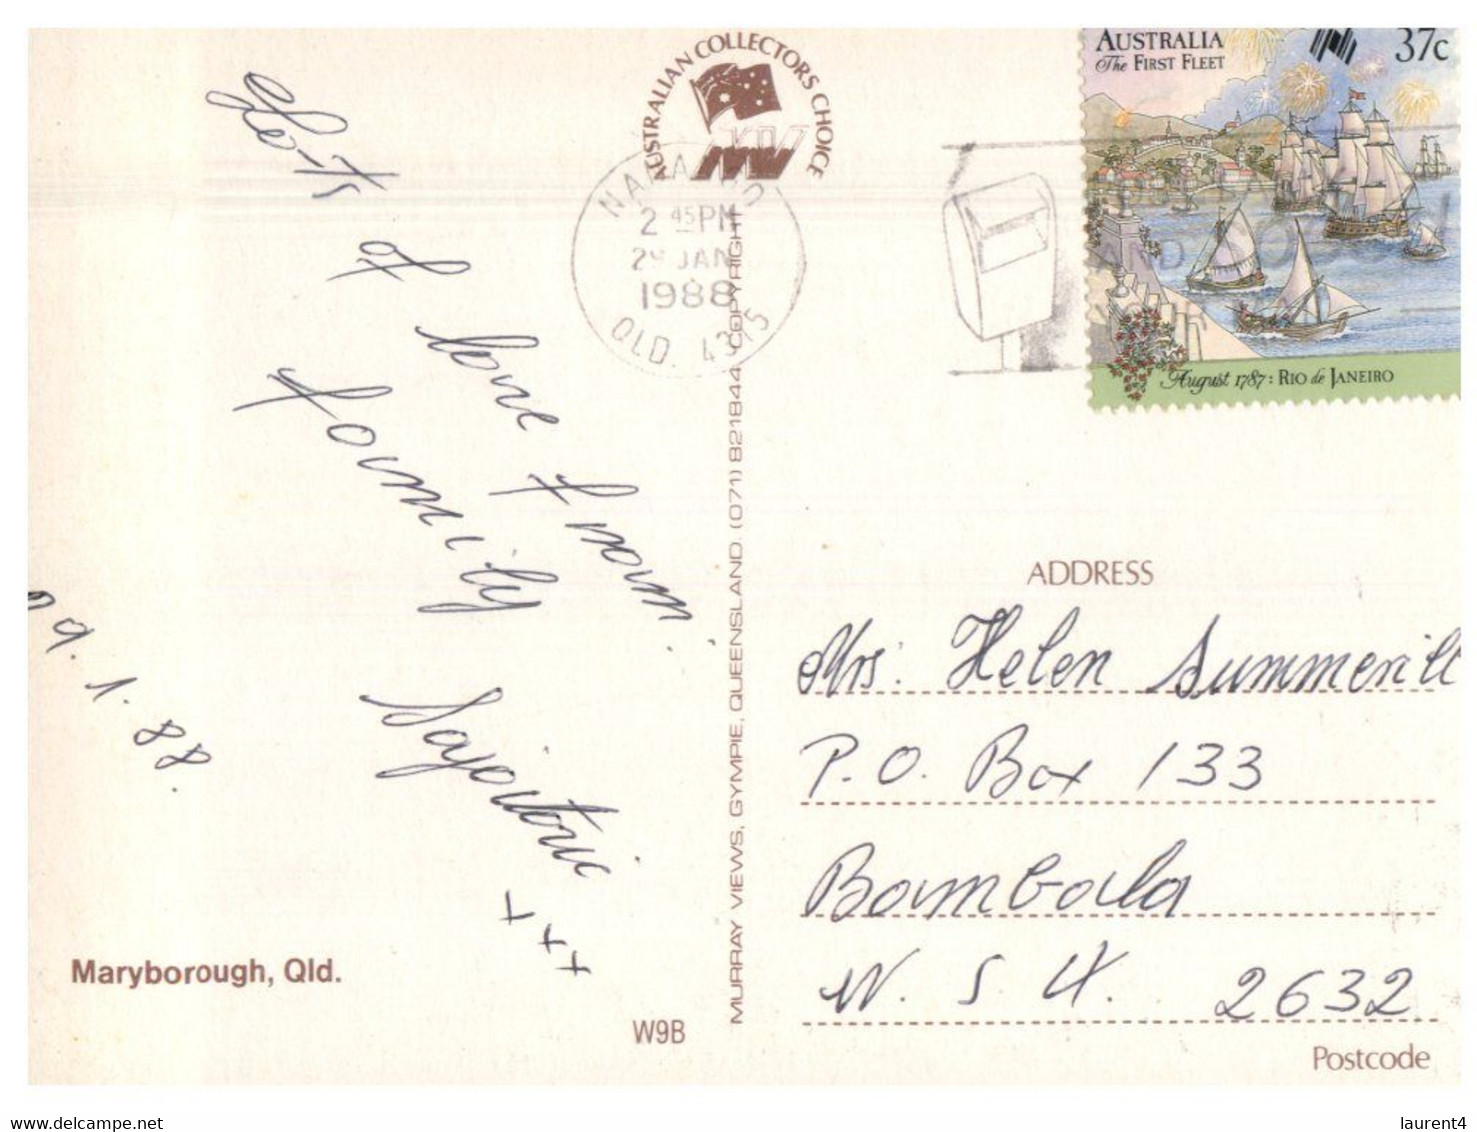 AUSTRALIAN COLLECTORS CHOICE
MV
AUSTRALIA
The FIRST FLEET
37c
August 1787: RIO de JANEIRO
2 45PM
29 JAN
1988
QLD. 4315
of love from
family
+ + +
9. 1. 88.
Maryborough, Qld.
W9B
MURRAY VIEWS, GYMPIE, QUEENSLAND. (071) 821844 COPYRIGHT
ADDRESS
Mrs. Helen Summerill
P.O. Box 133
Bombala
N. S. W. 2632
Postcode
laurent4